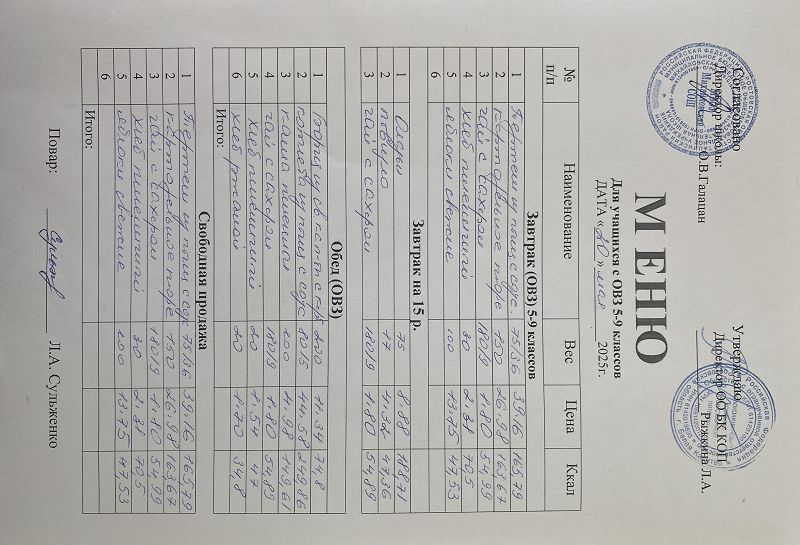 Согласовано
Директор школы:
О.В.Галацан
Утверждаю
Директор ОО БК КОП
Рыжкина Л.А.
М ЕНЮ
Для учащихся с ОВЗ 5-9 классов
ДАТА «20» мая 2025г.
№ п/п Наименование Вес Цена Ккал
Завтрак (ОВЗ) 5-9 классов
1 Тефтели из птиц с соус. 75/36 39,16 165,79
2 картофельное пюре 150 26,98 163,67
3 чай с сахаром 180/9 1.80 54,99
4 хлеб пшеничный 30 2,31 70,5
5 яблоки свежие 100 13.75 47,53
6
Завтрак на 15 р.
1 75 8,88 188,71
2 17 4,32 47,36
3 чай с сахаром 180/9 1.80 54,89
Обед (ОВЗ)
1 Борщ из св кап с кар 200 11,34 74,8
2 котлета из птиц с соус 80/5 44,58 249,86
3 каша пшенная 200 4,98 149,61
4 чай с сахаром 180/9 1.80 54,89
5 хлеб пшеничный 20 1,54 47
6 хлеб ржаной 20 1.70 34,8
Итого:
Свободная продажа
1 Тефтели из птиц с соус 75/36 39,16 165,79
2 картофельное пюре 150 26,98 163,67
3 чай с сахаром 180/9 1.80 54,99
4 хлеб пшеничный 30 2,31 70,5
5 яблоки свежие 100 13.75 47,53
6
Итого:
Повар: Л.А. Сульженко